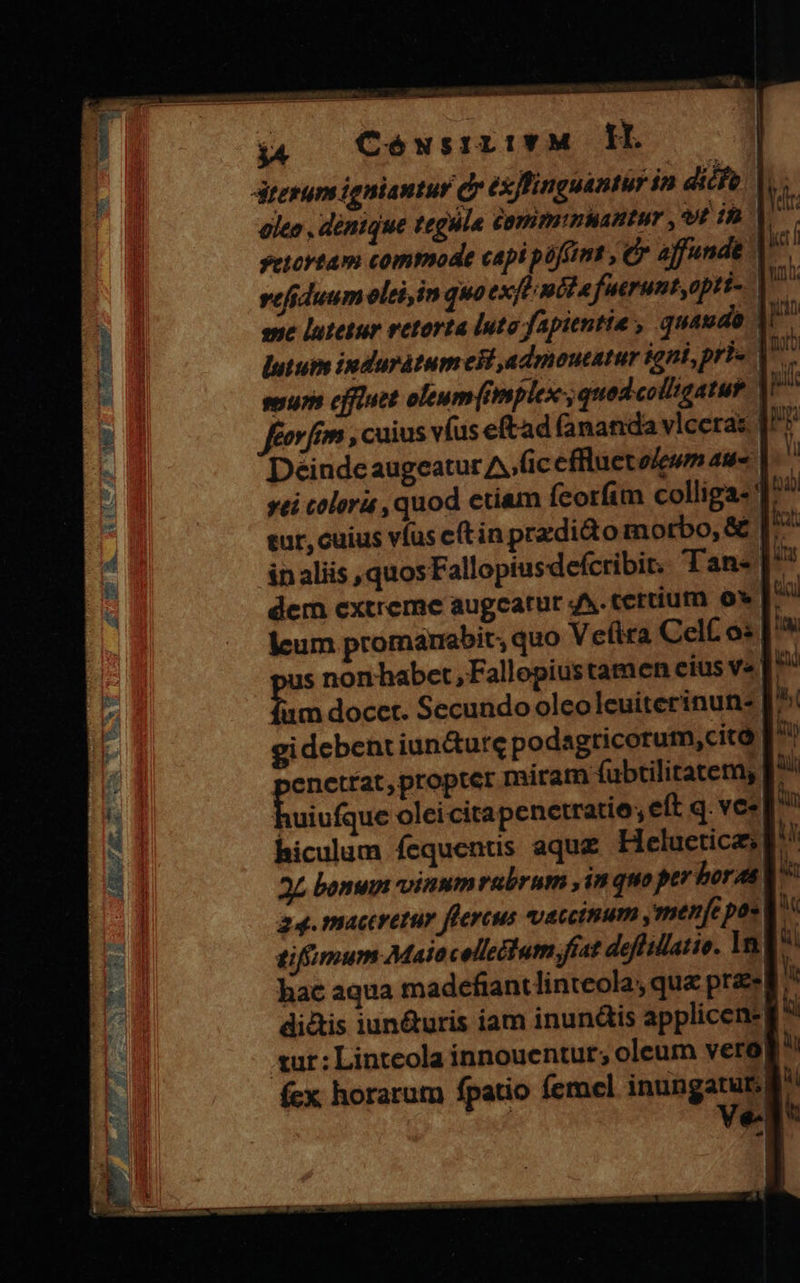 14 CONSILIVM II.
iterum igniantur & exſtinguantur in dicto
oleo, denique tegula comminuantur, vt in
retortam commode capi poſſint, & affunde
reſiduum olei, in quo exſtincta fuerunt, opti-
me lutetur retorta luto ſapientiæ, quando
lutum induratum eſt, admoueatur igni, pri-
mum effluet oleum ſimplex, quod colligatur
ſeorſim, cuius vſus eſt ad ſananda vlcera:
Deinde augeatur 🜂, ſic effluet oleum au-
rei coloris, quod etiam ſeorſim colliga-
tur, cuius vſus eſt in prædicto morbo, &
in aliis, quos Fallopius deſcribit. Tan-
dem extreme augeatur 🜂. tertium o-
leum promanabit, quo Veſtra Celſ. o-
pus non habet, Fallopius tamen eius v-
ſum docet. Secundo oleo leuiter inun-
gi debent iuncturę podagricorum, cito
penetrat, propter miram ſubtilitatem,
huiuſque olei cita penetratio, eſt q. ve-
hiculum ſequentis aquæ Helueticæ;
♃ bonum vinum rubrum, in quo per horas
24. maceretur ſtercus vaccinum, menſe po-
tiſſimum Maio collectum, fiat deſtillatio. In
hac aqua madefiant linteola, quæ præ-
dictis iuncturis iam inunctis applicen-
tur: Linteola innouentur, oleum vero
ſex horarum ſpatio ſemel inungatur.
Ve-